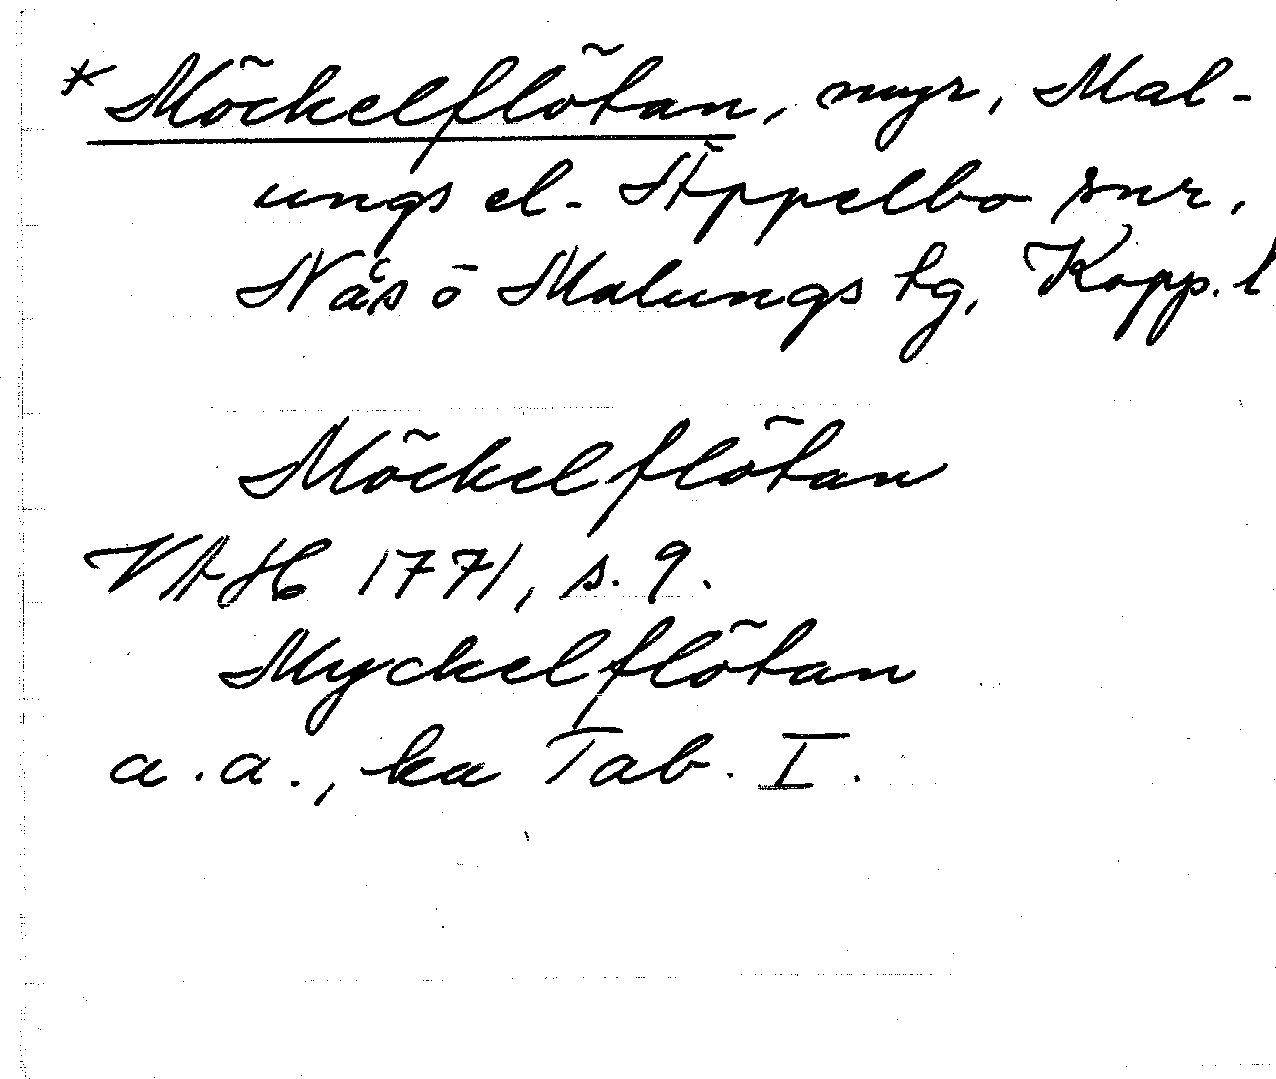 * Möckelflötan, myr, Mal-
ungs el. Äppelbo snr,
Nås o Malungs tg, Kopp. l
Möckelflötan
VAH 1771, s. 9.
Myckelflötan
a.a., ka Tab. I.